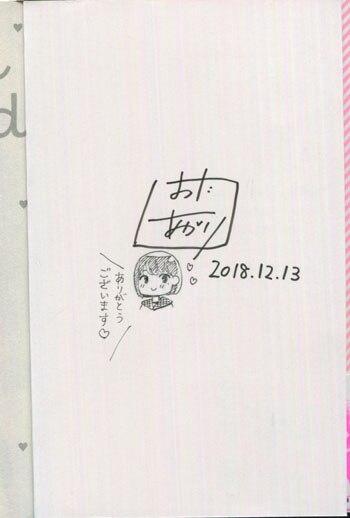 おだ
あがり
2018.12.13
ありがとう
ございます♡